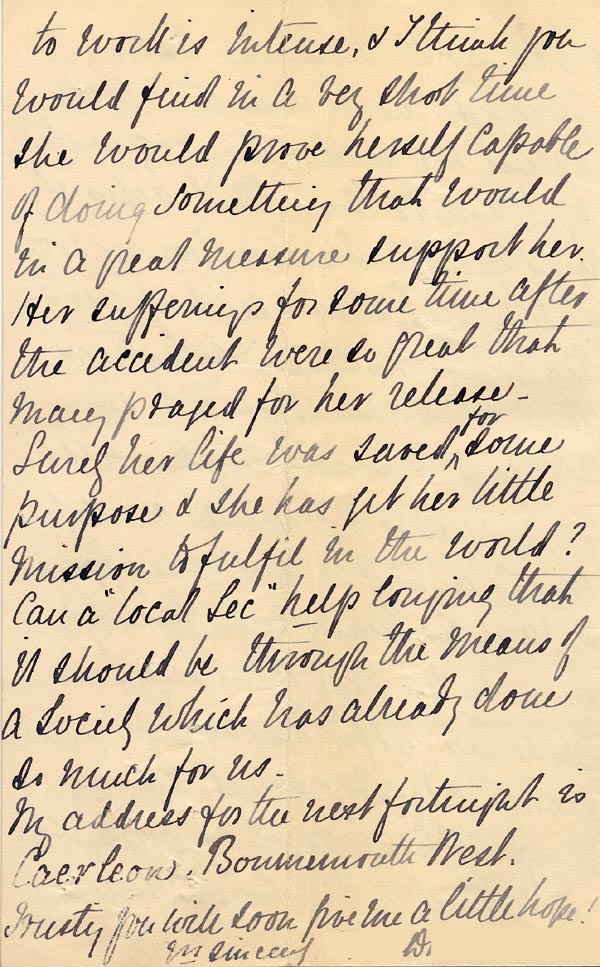 to work is intense, & I think you
would find in a very short time
she would prove herself capable
of doing something that would
in a great measure support her.
Her sufferings for some time after
the accident were so great that
many prayed for her release -
Surely her life was saved, for some
purpose & she has yet her little
mission to fulfil in the world?
Can a "local Sec" help longing that
it should be through the means of
a Society which has already done
so much for us.
My address for the next fortnight is
Caerleon. Bournemouth West.
Trusting you will soon give me a little hope!
Yrs sincerely